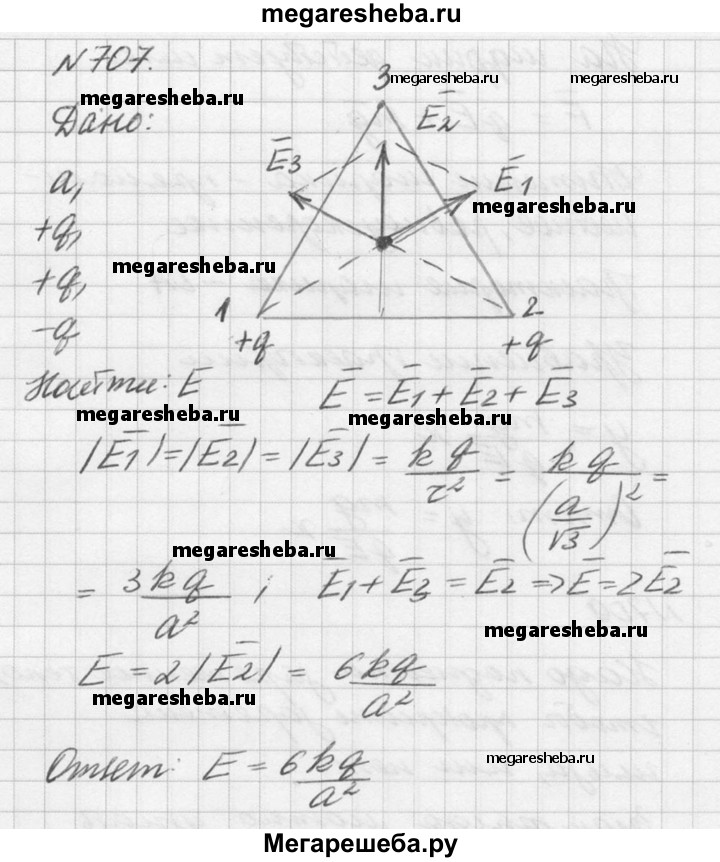 megaresheba.ru
N 707.
3 megaresheba.ru megaresheba.ru
megaresheba.ru
Дано: E̅2
E̅3 E̅1
a, megaresheba.ru
+q, megaresheba.ru
+q, 1 2
-q +q +q
Найти: E̅ E̅ = E̅1 + E̅2 + E̅3
megaresheba.ru megaresheba.ru
|E̅1| = |E̅2| = |E̅3| = kq/r² = kq/(a/√3)² =
megaresheba.ru
= 3kq/a² ; E̅1 + E̅3 = E̅2 => E̅ = 2E̅2
megaresheba.ru
E = 2|E̅2| = 6kq/a²
megaresheba.ru
Ответ: E = 6kq/a²
megaresheba.ru
Мегарешеба.ру